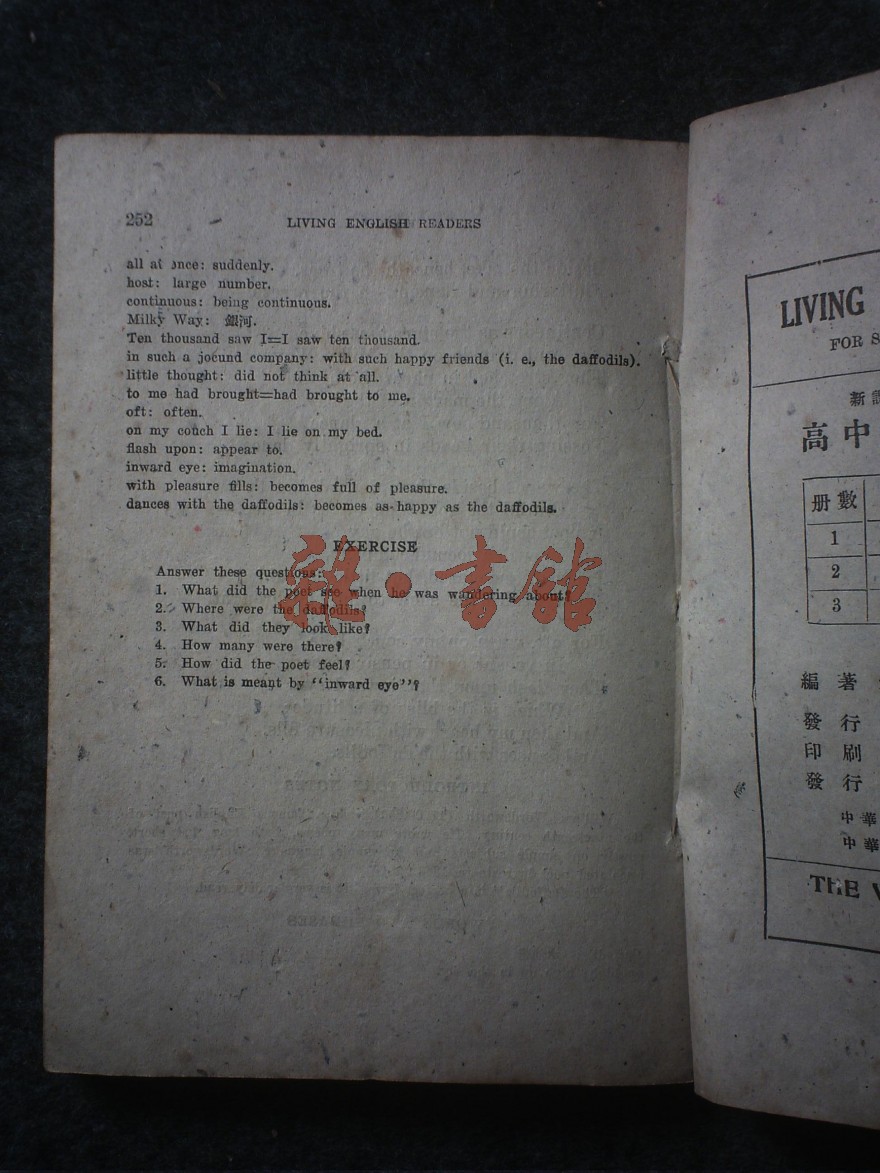 252
LIVING ENGLISH READERS
all at once: suddenly.
host: large number.
continuous: being continuous.
Milky Way: 銀河.
Ten thousand saw I=I saw ten thousand.
in such a jocund company: with such happy friends (i. e., the daffodils).
little thought: did not think at all.
to me had brought=had brought to me.
oft: often.
on my couch I lie: I lie on my bed.
flash upon: appear to.
inward eye: imagination.
with pleasure fills: becomes full of pleasure.
dances with the daffodils: becomes as happy as the daffodils.
EXERCISE
Answer these questions:
1. What did the poet see when he was wandering about?
2. Where were the daffodils?
3. What did they look like?
4. How many were there?
5. How did the poet feel?
6. What is meant by "inward eye"?
雜·書館
LIVING
FOR S
新
高中
册數
1
2
3
編著
發行
印刷
發行
中華
中華
THE